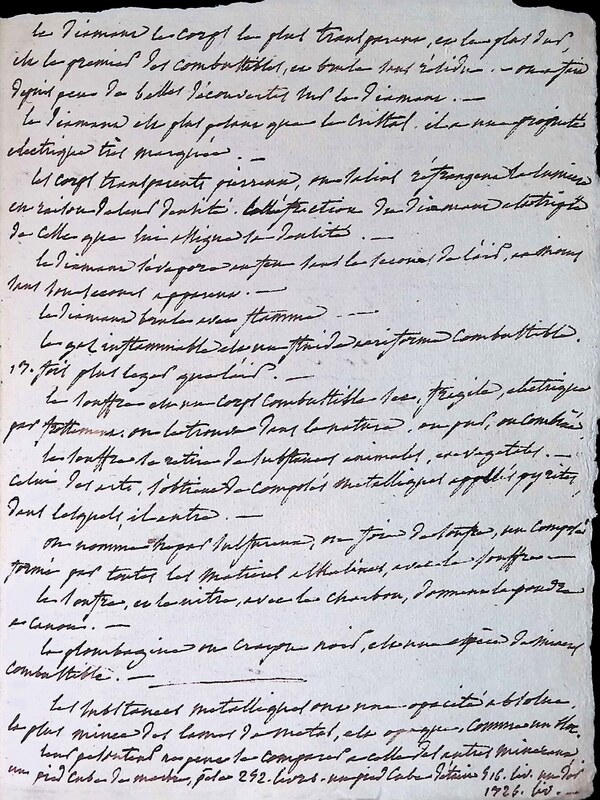 le diamant le corps le plus transparent, et le plus dur,
est le premier des combustibles, et brule sans residu. — on a fait
depuis peu de belles découvertes sur le diamant. —
le diamant est plus pesant que le cristal. il a une propriété
electrique très marquée. —
les corps transparents pierreux, ou salins réfrangent la lumiere
en raison de leur densité. la refraction du diamant est triple
de celle que lui assigne sa densité. —
le diamant s'evapore au feu sans le secours de l'air, au moins
sans son secours apparent. —
le diamant brule avec flamme. —
le gas inflammable est un fluide aeriforme combustible.
13. fois plus leger que l'air. —
le souffre est un corps combustible sec, fragile, electrique
par frottement. on le trouve dans la nature, ou pur, ou combiné.
le souffre se retire de substances animales, et vegetales. —
celui des arts, s'obtient de composés metalliques appellés pyrites,
dans lesquels il entre. —
on nomme hepar sulfureux, ou foie de soufre, un composé
formé par toutes les matieres alkalines, avec le souffre —
le soufre, et le nitre, avec le charbon, donnent la poudre
a canon. —
la plombagine ou crayon noir, est une espèce de mineral
combustible. —
les substances metalliques ont une opacité absolue.
la plus mince des lames de metal, est opaque, comme un bloc.
leur pesanteur ne peut se comparer a celle des autres mineraux
un pied cube de marbre, pèse 252. livres. un pied cube d'étain 516. liv. un d'or
1326. liv. —